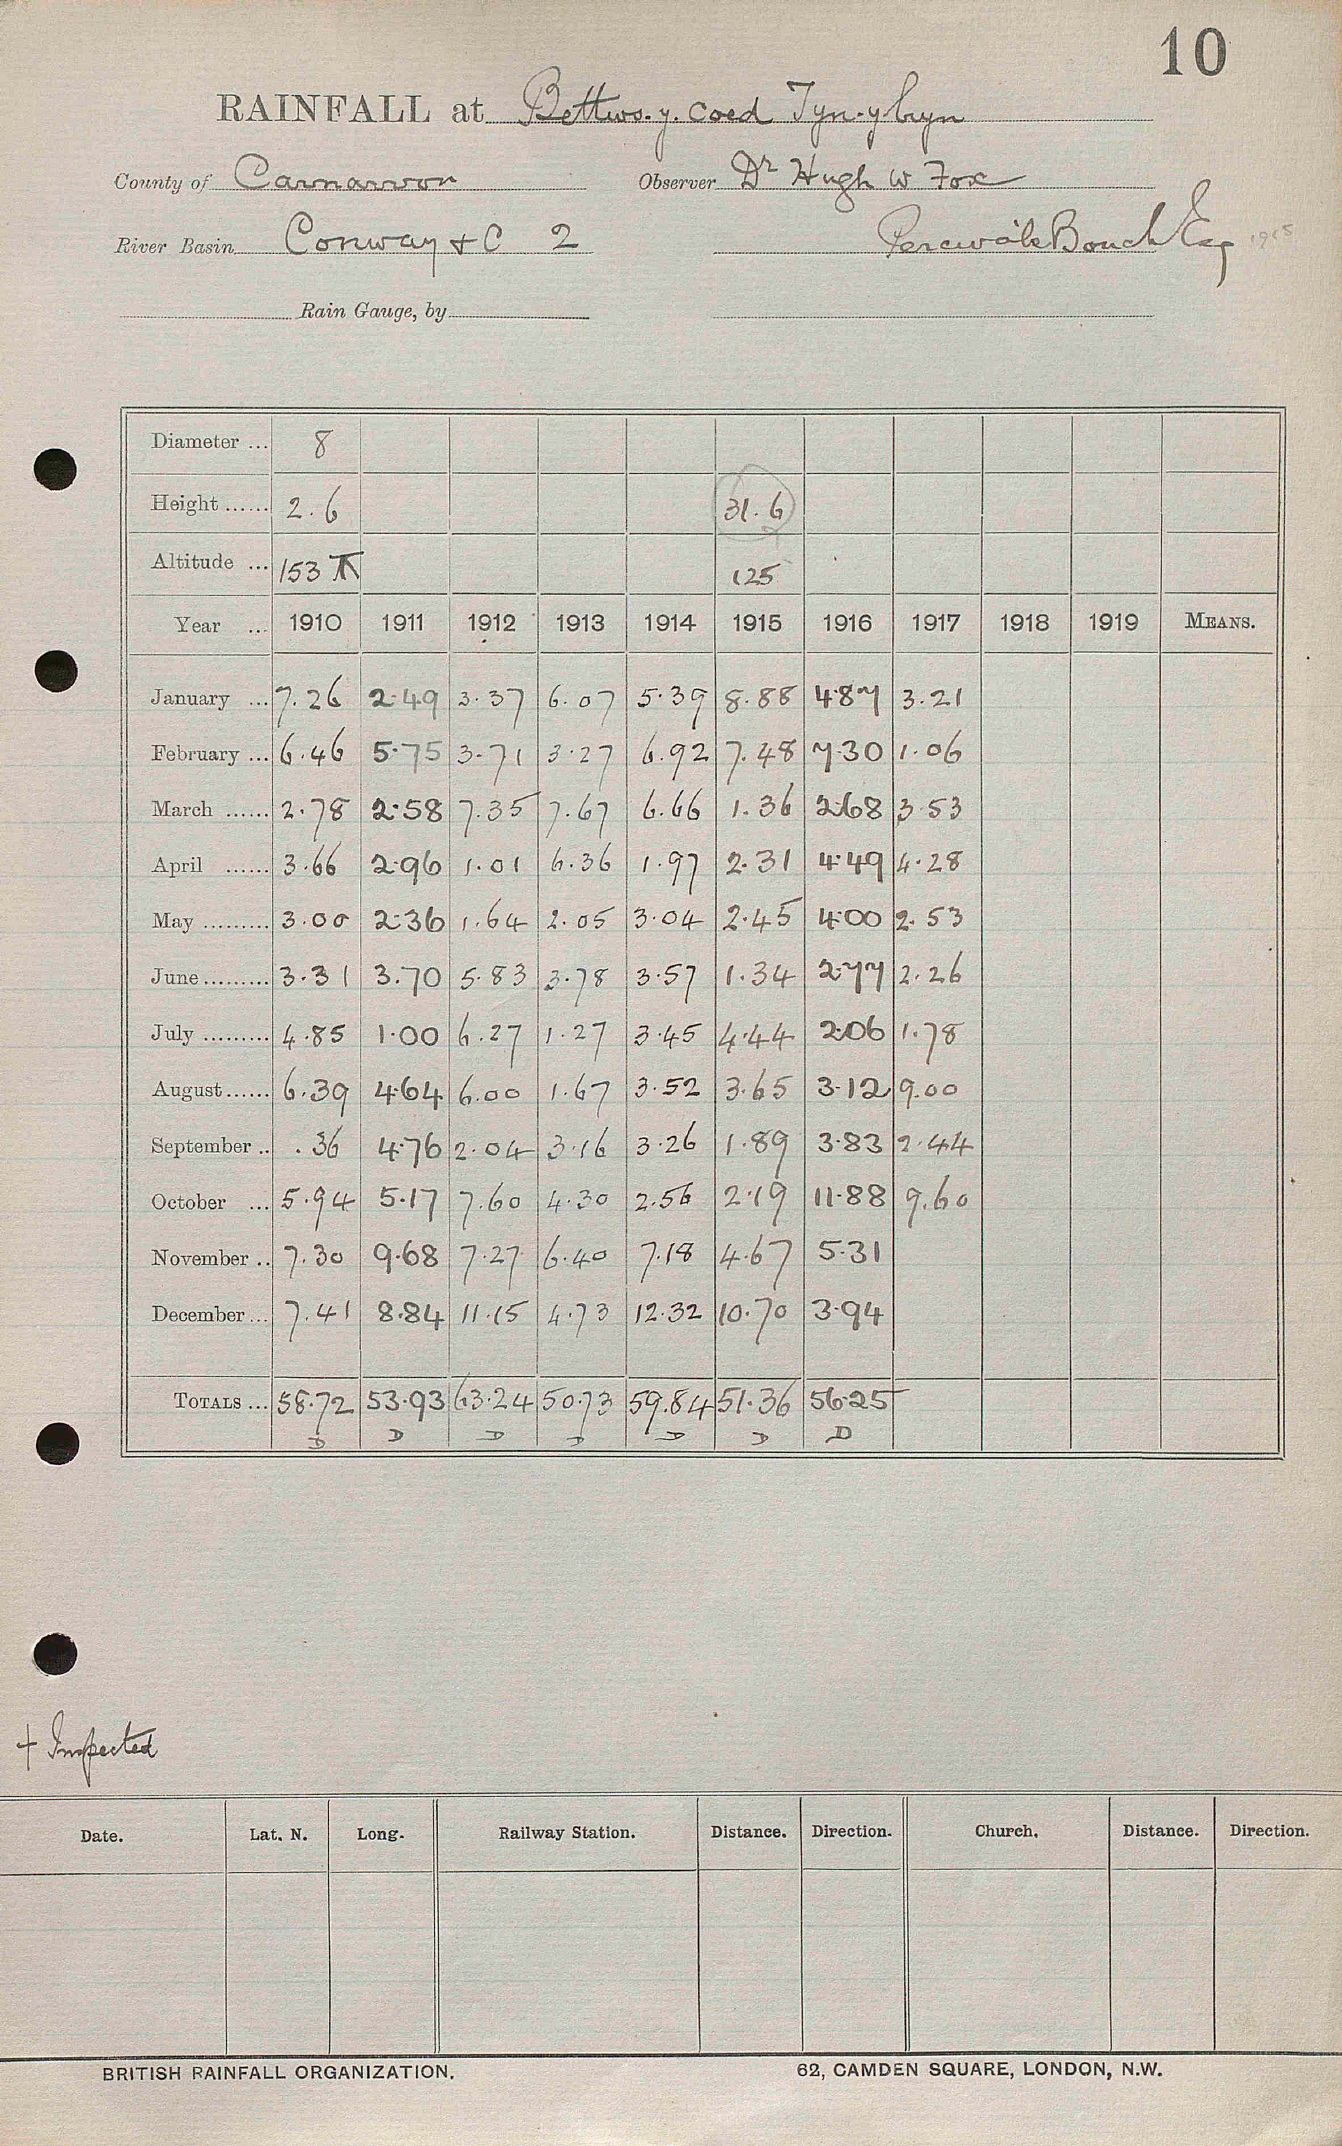 10
RAINFALL at Bettws. y. coed Tyn-y-bryn
County of Carnarvon Observer Dr Hugh W Fox
River Basin Conway & C 2 Percivale Bouch Esq 1915
Rain Gauge, by
Diameter ... 8
Height ...... 2.6 31.6
Altitude ... 153 T 125
Year ... 1910 1911 1912 1913 1914 1915 1916 1917 1918 1919 MEANS.
January ... 7.26 2.49 3.37 6.07 5.39 8.88 4.87 3.21
February ... 6.46 5.75 3.71 3.27 6.92 7.48 7.30 1.06
March ...... 2.78 2.58 7.35 7.67 6.66 1.36 2.68 3.53
April ...... 3.66 2.96 1.01 6.36 1.97 2.31 4.49 4.28
May ......... 3.00 2.36 1.64 2.05 3.04 2.45 4.00 2.53
June ......... 3.31 3.70 5.83 3.78 3.57 1.34 2.77 2.26
July ......... 4.85 1.00 6.27 1.27 3.45 4.44 2.06 1.78
August ...... 6.39 4.64 6.00 1.67 3.52 3.65 3.12 9.00
September .. .36 4.76 2.04 3.16 3.26 1.89 3.83 2.44
October ... 5.94 5.17 7.60 4.30 2.56 2.19 11.88 9.60
November .. 7.30 9.68 7.27 6.40 7.18 4.67 5.31
December ... 7.41 8.84 11.15 4.73 12.32 10.70 3.94
TOTALS ... 58.72 53.93 63.24 50.73 59.84 51.36 56.25
D D D D D D D
+ Inspected
Date. Lat. N. Long. Railway Station. Distance. Direction. Church. Distance. Direction.
BRITISH RAINFALL ORGANIZATION. 62, CAMDEN SQUARE, LONDON, N.W.